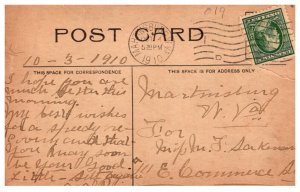 019
POST CARD
5:30 PM
1910
10-3-1910
THIS SPACE FOR CORRESPONDENCE
THIS SPACE IS FOR ADDRESS ONLY
I hope you are
much better this
morning.
My best wishes
for a speedy re-
covery and that
you may soon
be your good
little
Martinsburg
W. Va
For
M. F.
E. Commerce S